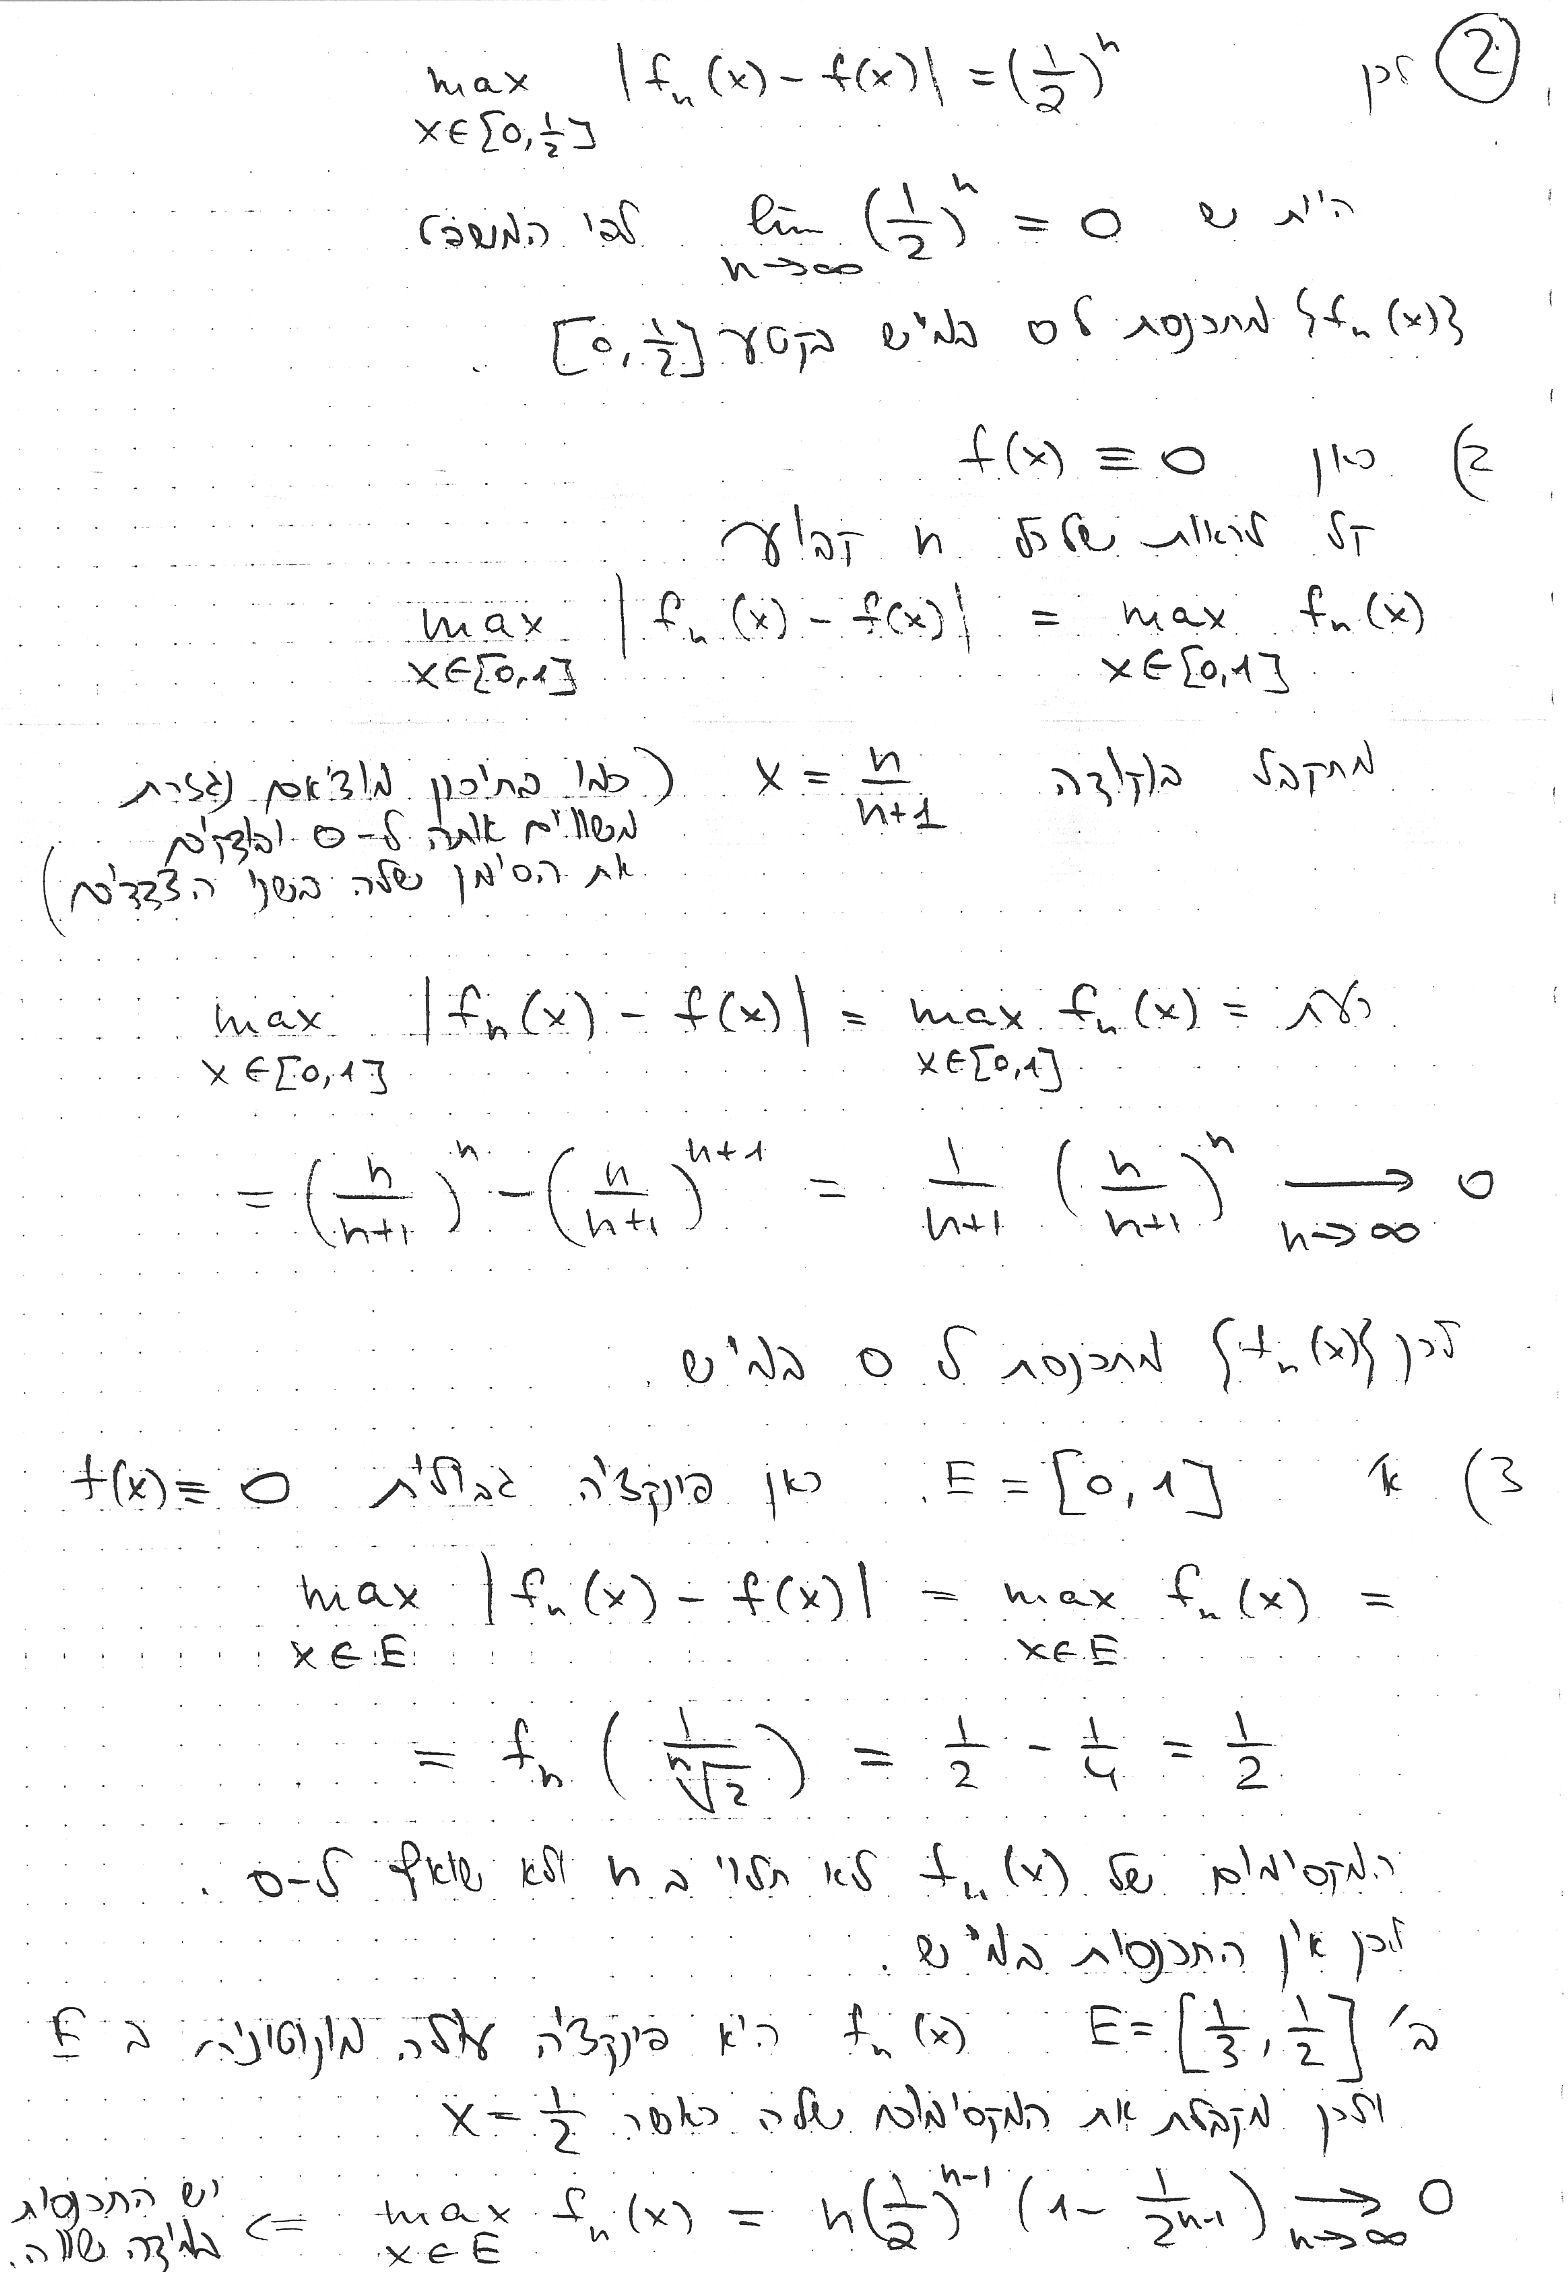 ② לכן max |fₙ(x) - f(x)| = (1/2)ⁿ
x∈[0,1/2]
היות ש lim (1/2)ⁿ = 0 לפי המשפט
n→∞
{fₙ(x)} מתכנסת ל 0 במ"ש בקטע [0,1/2].
2) כאן f(x) ≡ 0
קל לראות שלכל n קבוע
max |fₙ(x) - f(x)| = max fₙ(x)
x∈[0,1] x∈[0,1]
מתקבל בנקודה x = n/(n+1) (כמו בתיכון מוצאים נגזרת
משווים אותה ל-0 ובודקים
את הסימן שלה בשני הצדדים)
כעת max |fₙ(x) - f(x)| = max fₙ(x) =
x∈[0,1] x∈[0,1]
= (n/(n+1))ⁿ - (n/(n+1))ⁿ⁺¹ = 1/(n+1) (n/(n+1))ⁿ → 0
n→∞
לכן {fₙ(x)} מתכנסת ל 0 במ"ש.
3) א' E = [0,1]. כאן פונקציה גבולית f(x) ≡ 0
max |fₙ(x) - f(x)| = max fₙ(x) =
x∈E x∈E
= fₙ(1/ⁿ√2) = 1/2 - 1/4 = 1/2
המקסימום של fₙ(x) לא תלוי ב n ולא שואף ל-0.
לכן אין התכנסות במ"ש.
ב' E = [1/3, 1/2] fₙ(x) היא פונקציה עולה מונוטונית ב E
ולכן מקבלת את המקסימום שלה כאשר x = 1/2
max fₙ(x) = n(1/2)ⁿ⁻¹ (1 - 1/2ⁿ⁻¹) → 0 => יש התכנסות
x∈E n→∞ במידה שווה.